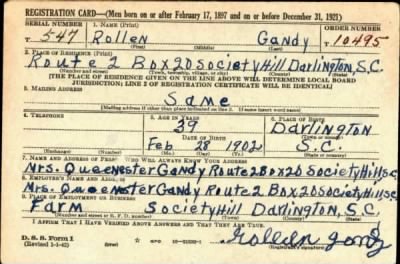 REGISTRATION CARD—(Men born on or after February 17, 1897 and on or before December 31, 1921)
SERIAL NUMBER 1. NAME (Print) ORDER NUMBER
T 547 Rollen Gandy T 10495
(First) (Middle) (Last)
2. PLACE OF RESIDENCE (Print)
Route 2 Box 20 Society Hill Darlington, S.C.
(Number and street) (Town, township, village, or city) (County) (State)
[THE PLACE OF RESIDENCE GIVEN ON THE LINE ABOVE WILL DETERMINE LOCAL BOARD
JURISDICTION; LINE 2 OF REGISTRATION CERTIFICATE WILL BE IDENTICAL]
3. MAILING ADDRESS
Same
[Mailing address if other than place indicated on line 2. If same insert word same]
4. TELEPHONE 5. AGE IN YEARS 6. PLACE OF BIRTH
39 Darlington
DATE OF BIRTH (Town or county)
Feb 28 1902 S.C.
(Exchange) (Number) (Mo.) (Day) (Yr.) (State or country)
7. NAME AND ADDRESS OF PERSON WHO WILL ALWAYS KNOW YOUR ADDRESS
Mrs. Queenester Gandy Route 2 Box 20 Society Hill S.C.
8. EMPLOYER'S NAME AND ADDRESS
Mrs. Queenester Gandy Route 2 Box 20 Society Hill S.C.
9. PLACE OF EMPLOYMENT OR BUSINESS
Farm Society Hill Darlington, S.C.
(Number and street or R. F. D. number) (Town) (County) (State)
I AFFIRM THAT I HAVE VERIFIED ABOVE ANSWERS AND THAT THEY ARE TRUE.
D. S. S. Form 1
(Revised 1-1-42) (over) Rollen Gandy
(Registrant's signature)